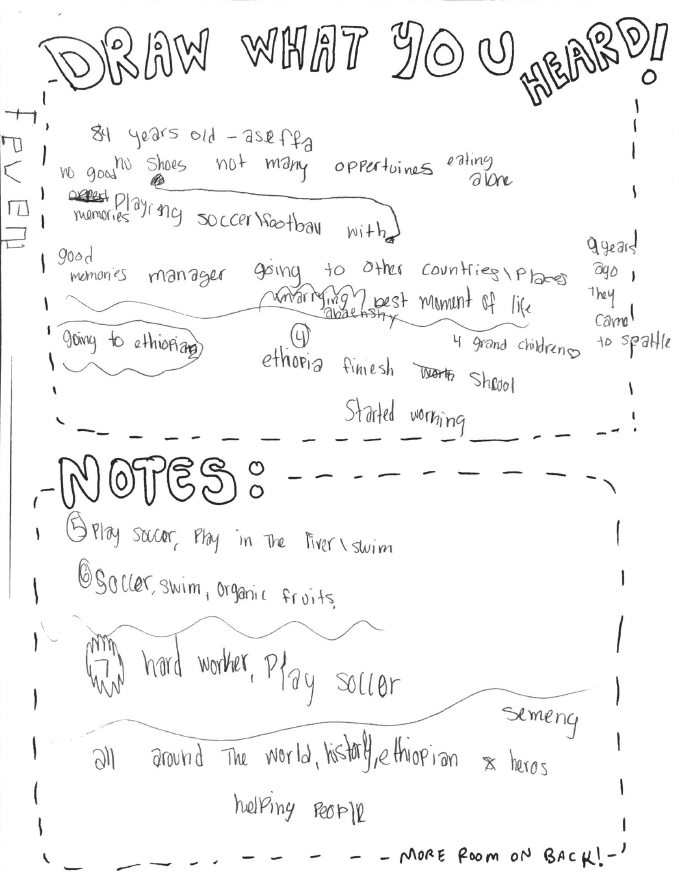 DRAW WHAT YOU HEARD!
84 years old - aseffa
no good no shoes not many oppertuines eating alone
memories Playing soccer\football with
good memories manager going to other countries\places
9 years ago They came to seattle
best moment of life
going to ethiopian
④ ethiopia finiesh shcool
4 grand children
Started working
NOTES:
⑤ Play soccer, Play in The river\swim
⑥ Soccer, swim, organic fruits.
7 hard worker, Play soccer
semeng
all around The world, history, ethiopian & heros
helping PeoPle
MORE ROOM ON BACK!